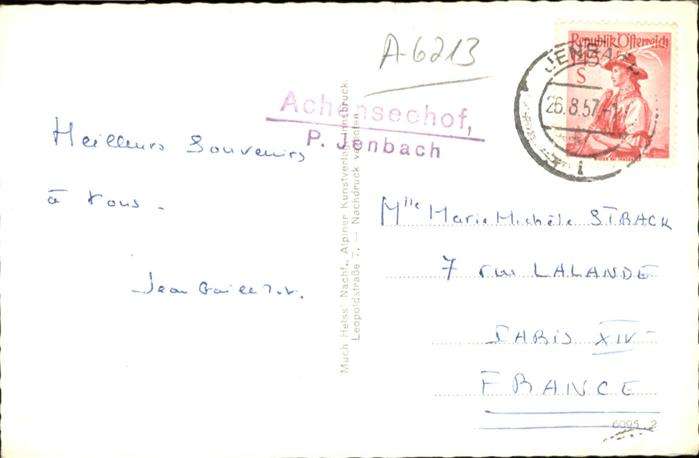 A-6213
Republik Österreich
S
JENBACH
26.8.57
i
Achenseehof,
P. Jenbach
Meilleurs Souvenirs
à tous.
Jean
Much Heiss' Nachf., Alpiner Kunstverlag, Innsbruck
Leopoldstraße 7. — Nachdruck verboten.
Mlle Marie Michèle STRACK
7 rue LALANDE
PARIS XIV
FRANCE